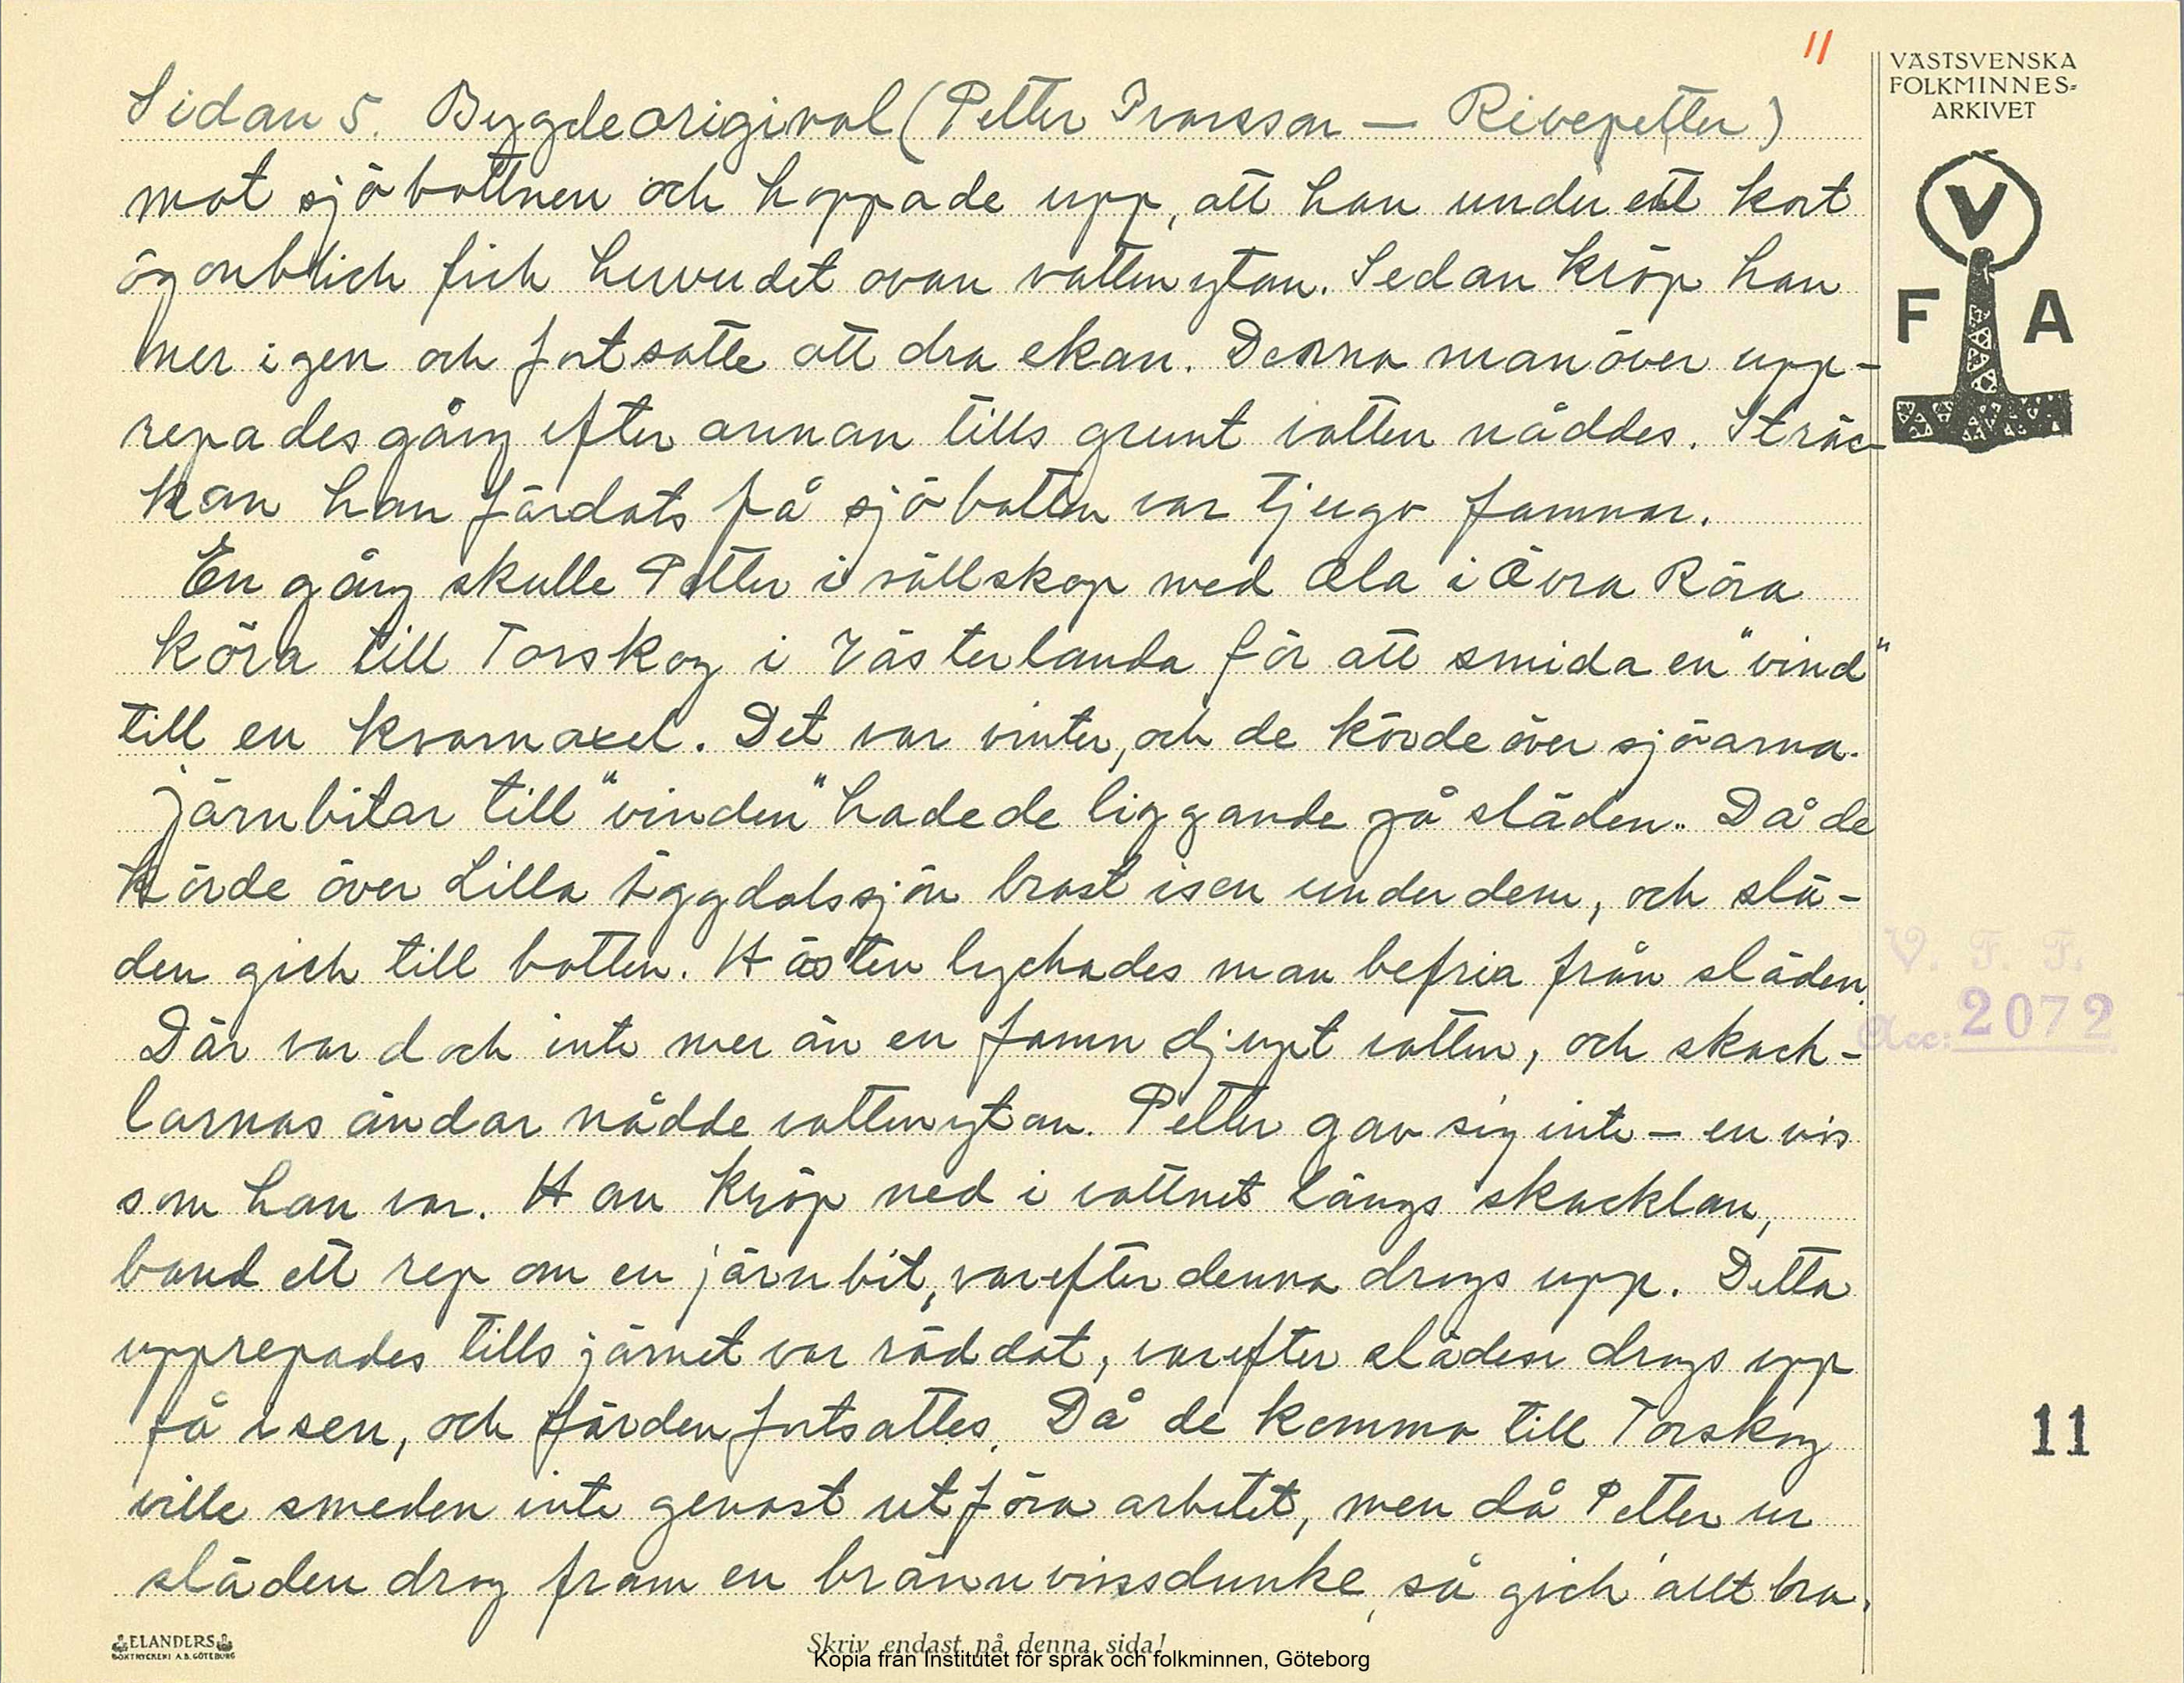 11
VÄSTSVENSKA
FOLKMINNES-
ARKIVET
V
F A
Sidan 5. Bygdeoriginal (Petter Ivarsson — Rivepetter)
mot sjöbottnen och hoppade upp, att han under ett kort
ögonblick fick huvudet ovan vattenytan. Sedan kröp han
ner igen och fortsatte att dra ekan. Denna manöver upp-
repades gång efter annan tills grunt vatten nåddes. Sträc-
kan han färdats på sjöbotten var tjugo famnar.
En gång skulle Petter i sällskap med Ola i Övra Röra
köra till Torskog i Västerlanda för att smida en "vind"
till en kvarnaxel. Det var vinter, och de körde över sjöarna.
Järnbitar till "vinden" hade de liggande på släden. Då de
körde över Lilla Äggdalssjön brast isen under dem, och slä-
den gick till botten. Hästen lyckades man befria från släden.
Där var dock inte mer än en famn djupt vatten, och skack-
larnas ändar nådde vattenytan. Petter gav sig inte – envis
som han var. Han kröp ned i vattnet längs skacklan,
band ett rep om en järnbit, varefter denna drogs upp. Detta
upprepades tills järnet var räddat, varefter släden drogs upp
på isen, och färden fortsattes. Då de komma till Torskog
ville smeden inte genast utföra arbetet, men då Petter ur
släden drog fram en brännvinsdunke, så gick allt bra.
V. F. F.
Acc: 2072
11
ELANDERS
BOKTRYCKERI A.B. GÖTEBORG
Skriv endast på denna sida!
Kopia från Institutet för språk och folkminnen, Göteborg